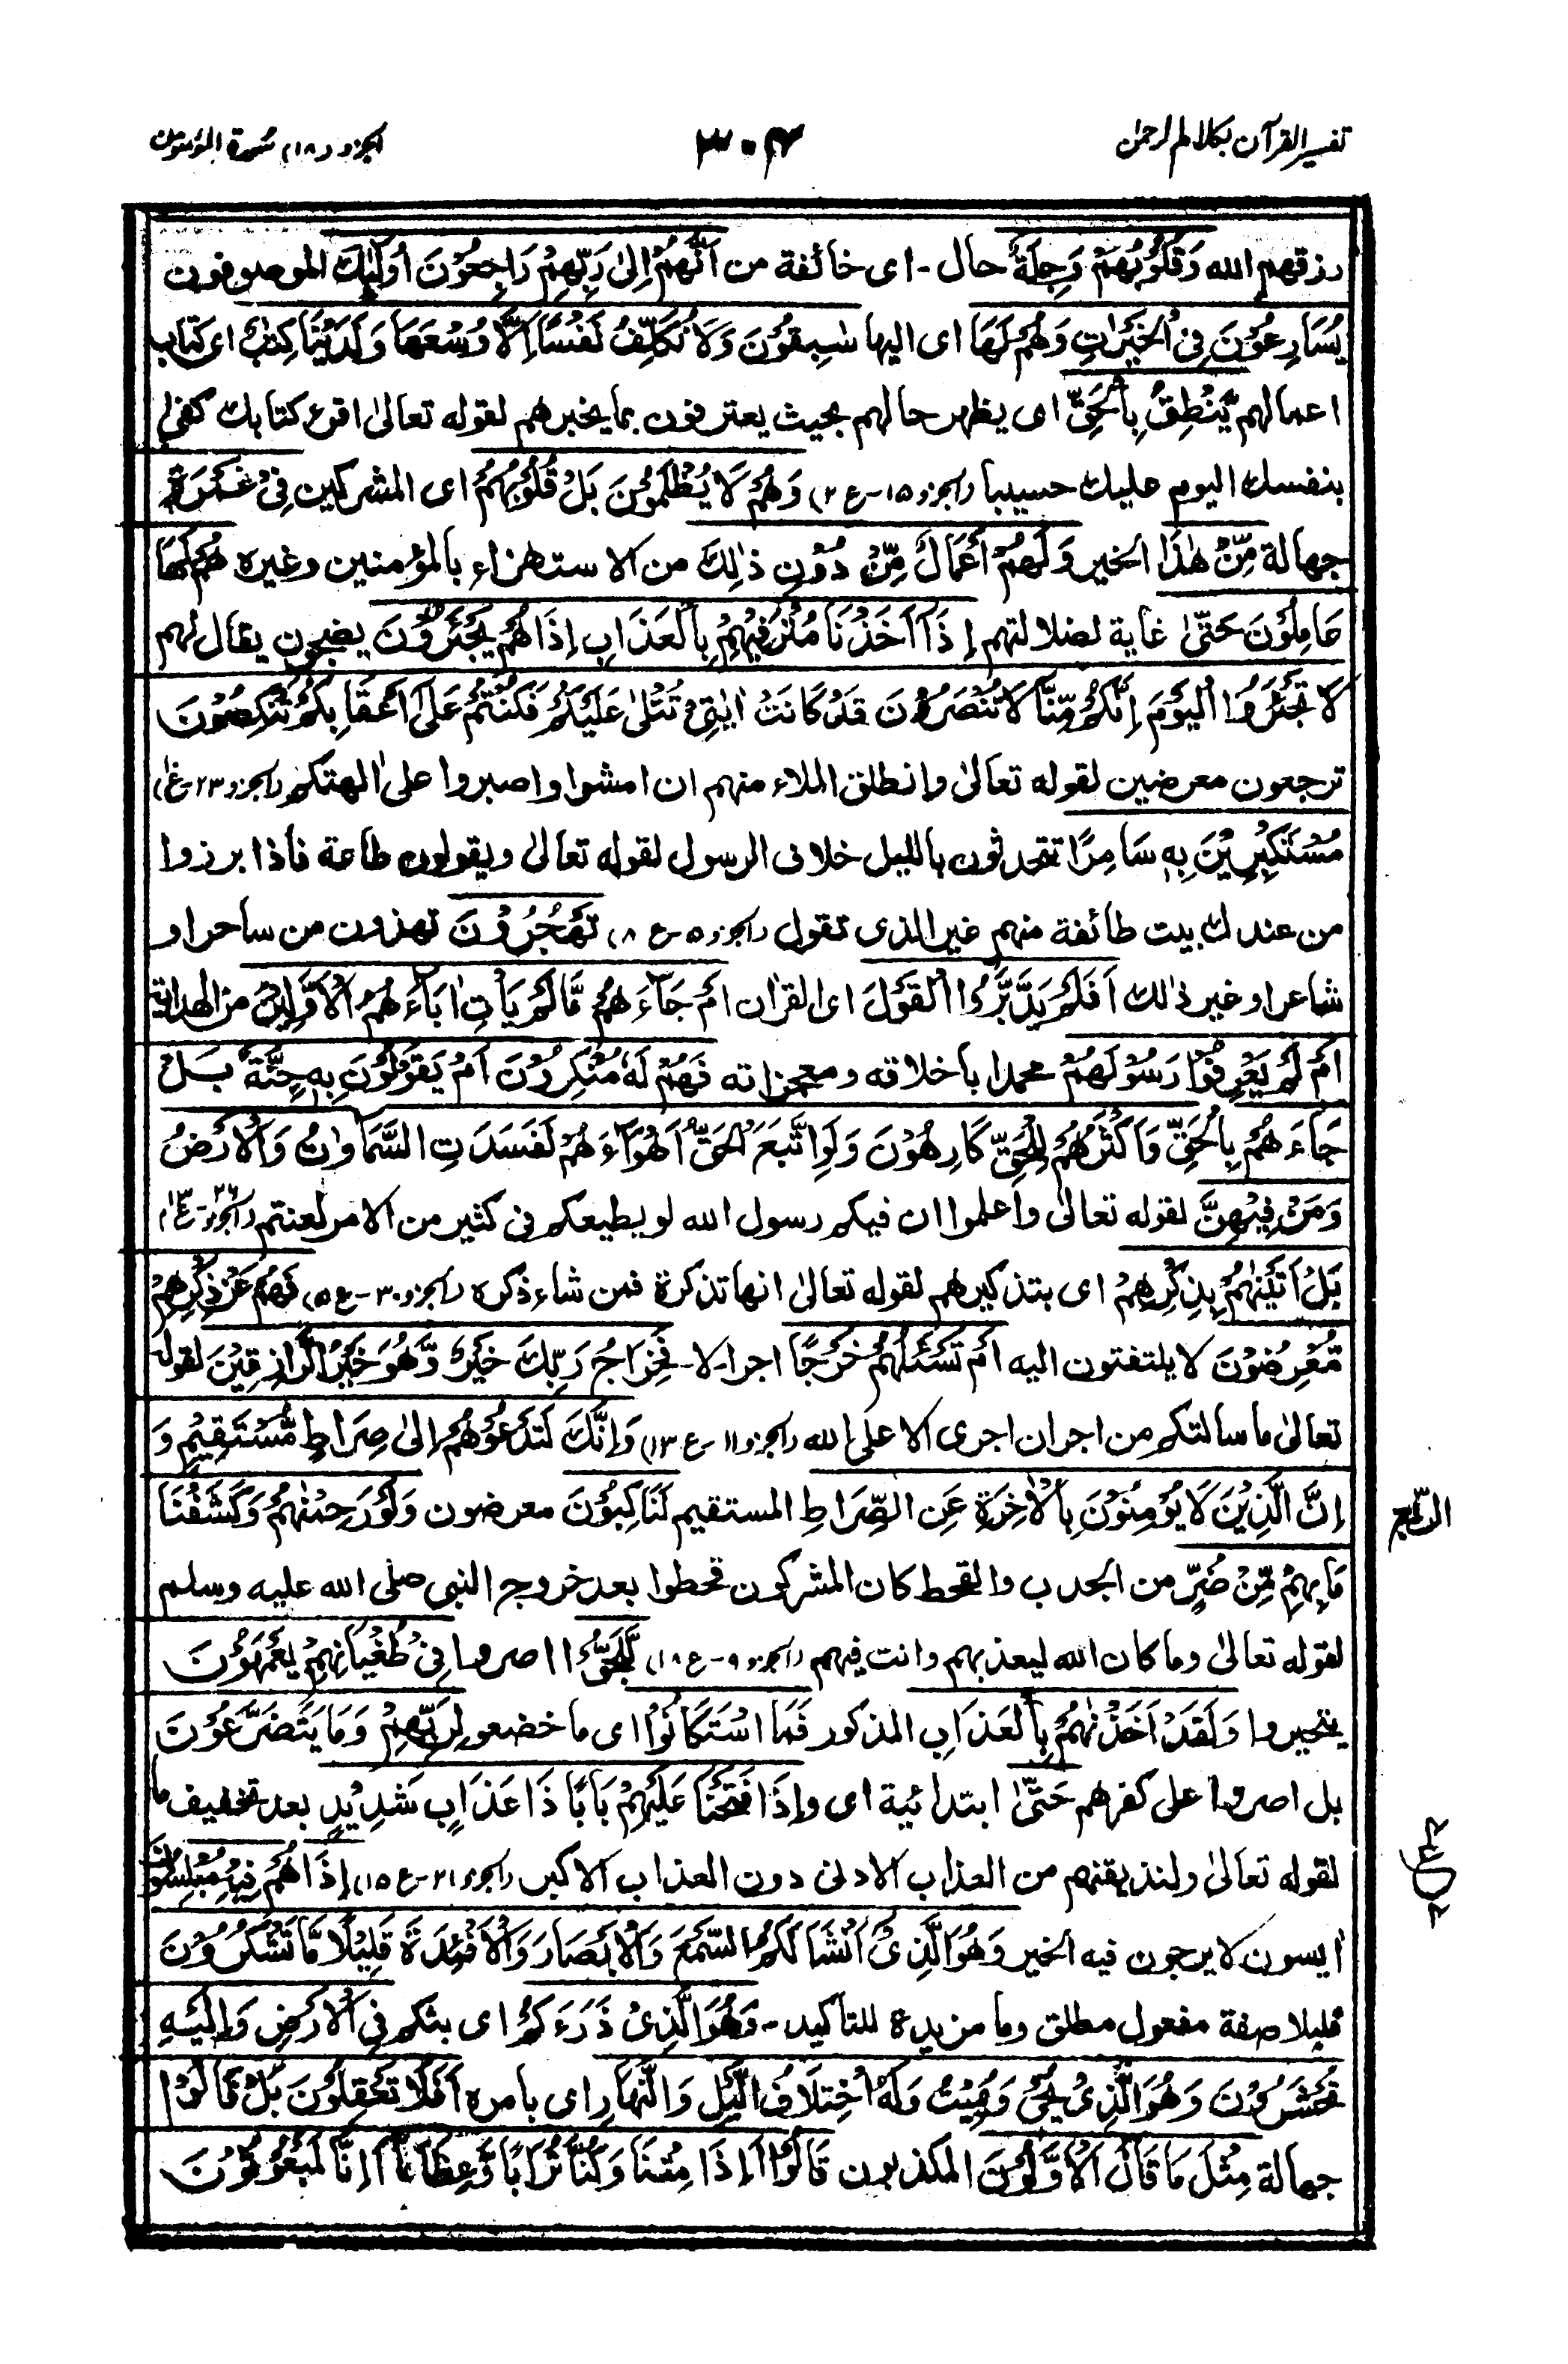 تفسير القرآن بكلام الرحمن
٣٠٤
الجزو (١٨) سورة المؤمنون
رزقهم الله وَقُلُوْبُهُمْ وَجِلَةٌ حال - اى خائفة من اَنَّهُمْ اِلٰى رَبِّهِمْ رَاجِعُوْنَ اُولٰٓئِكَ الموصوفون
يُسَارِعُوْنَ فِى الْخَيْرَاتِ وَهُمْ لَهَا اى اليها سٰبِقُوْنَ وَلَا نُكَلِّفُ نَفْسًا اِلَّا وُسْعَهَا وَلَدَيْنَا كِتٰبٌ اى كتاب
اعمالهم يَّنْطِقُ بِالْحَقِّ اى يظهر حالهم بحيث يعترفون بما يخبرهم لقوله تعالىٰ اقرء كتابك كفىٰ
بنفسك اليوم عليك حسيبا (الجزو ١٥ - ع ٢) وَهُمْ لَا يُظْلَمُوْنَ بَلْ قُلُوْبُهُمْ اى المشركين فِىْ غَمْرَةٍ
جهالة مِّنْ هٰذَا الخير وَلَهُمْ اَعْمَالٌ مِّنْ دُوْنِ ذٰلِكَ من الاستهزاء بالمؤمنين وغيره هُمْ لَهَا
عَامِلُوْنَ حَتّٰى غاية لضلالتهم اِذَآ اَخَذْنَا مُتْرَفِيْهِمْ بِالْعَذَابِ اِذَا هُمْ يَجْئَرُوْنَ يضجون يقال لهم
لَا تَجْئَرُوا الْيَوْمَ اِنَّكُمْ مِّنَّا لَا تُنْصَرُوْنَ قَدْ كَانَتْ اٰيٰتِىْ تُتْلٰى عَلَيْكُمْ فَكُنْتُمْ عَلٰى اَعْقَابِكُمْ تَنْكِصُوْنَ
ترجعون معرضين لقوله تعالىٰ وانطلق الملاء منهم ان امشوا واصبروا علىٰ اٰلهتكم (الجزو ٢٣ - ع ١٠)
مُسْتَكْبِرِيْنَ بِهٖ سَامِرًا تتحدثون بالليل خلاف الرسول لقوله تعالىٰ ويقولون طاعة فاذا برزوا
من عندك بيت طائفة منهم غير الذى تقول (الجزو ٥ - ع ٨) تَهْجُرُوْنَ تهذون من ساحر او
شاعر او غير ذالك اَفَلَمْ يَدَّبَّرُوا الْقَوْلَ اى القراٰن اَمْ جَآءَهُمْ مَّا لَمْ يَاْتِ اٰبَآءَهُمُ الْاَوَّلِيْنَ من الهداية
اَمْ لَمْ يَعْرِفُوْا رَسُوْلَهُمْ محمدا باخلاقه ومعجزاته فَهُمْ لَهٗ مُنْكِرُوْنَ اَمْ يَقُوْلُوْنَ بِهٖ جِنَّةٌ بَلْ
جَآءَهُمْ بِالْحَقِّ وَاَكْثَرُهُمْ لِلْحَقِّ كَارِهُوْنَ وَلَوِ اتَّبَعَ الْحَقُّ اَهْوَآءَهُمْ لَفَسَدَتِ السَّمَاوٰتُ وَالْاَرْضُ
وَمَنْ فِيْهِنَّ لقوله تعالىٰ واعلموا ان فيكم رسول الله لو يطيعكم فى كثير من الامر لعنتم (الجزو ٢٦ - ع ١٣)
بَلْ اَتَيْنٰهُمْ بِذِكْرِهِمْ اى بتذكيرهم لقوله تعالىٰ انها تذكرة فمن شاء ذكره (الجزو ٣٠ - ع ٥) فَهُمْ عَنْ ذِكْرِهِمْ
مُّعْرِضُوْنَ لا يلتفتون اليه اَمْ تَسْئَلُهُمْ خَرْجًا اجرا - لا - فَخَرَاجُ رَبِّكَ خَيْرٌ وَّهُوَ خَيْرُ الرَّازِقِيْنَ لقوله
تعالىٰ ما سالتكم من اجر ان اجرى الا على الله (الجزو ١١ - ع ١٣) وَاِنَّكَ لَتَدْعُوْهُمْ اِلٰى صِرَاطٍ مُّسْتَقِيْمٍ وَ
اِنَّ الَّذِيْنَ لَا يُؤْمِنُوْنَ بِالْاٰخِرَةِ عَنِ الصِّرَاطِ المستقيم لَنَاكِبُوْنَ معرضون وَلَوْ رَحِمْنٰهُمْ وَكَشَفْنَا
مَا بِهِمْ مِّنْ ضُرٍّ من الجدب والقحط كان المشركون قحطوا بعد خروج النبى صلى الله عليه وسلم
لقوله تعالىٰ وما كان الله ليعذبهم وانت فيهم (الجزو ٩ - ع ١٨) لَّلَجُّوْا اصروا فِىْ طُغْيَانِهِمْ يَعْمَهُوْنَ
يتحيروا وَلَقَدْ اَخَذْنٰهُمْ بِالْعَذَابِ المذكور فَمَا اسْتَكَانُوْا اى ما خضعوا لِرَبِّهِمْ وَمَا يَتَضَرَّعُوْنَ
بل اصروا على كفرهم حَتّٰى ابتدائية اى واِذَا فَتَحْنَا عَلَيْهِمْ بَابًا ذَا عَذَابٍ شَدِيْدٍ بعد تخفيف ما
لقوله تعالىٰ ولنذيقنهم من العذاب الادنى دون العذاب الاكبر (الجزو ٢١ - ع ١٥) اِذَا هُمْ فِيْهِ مُبْلِسُوْنَ
اٰيسون لا يرجون فيه الخير وَهُوَ الَّذِىْ اَنْشَاَ لَكُمُ السَّمْعَ وَالْاَبْصَارَ وَالْاَفْئِدَةَ قَلِيْلًا مَّا تَشْكُرُوْنَ
قليلا صفة مفعول مطلق وما مزيدة للتأكيد - وَهُوَ الَّذِىْ ذَرَءَكُمْ اى بثكم فِى الْاَرْضِ وَاِلَيْهِ
تُحْشَرُوْنَ وَهُوَ الَّذِىْ يُحْىٖ وَيُمِيْتُ وَلَهُ اخْتِلَافُ الَّيْلِ وَالنَّهَارِ اى بامره اَفَلَا تَعْقِلُوْنَ بَلْ قَالُوْا
جهالة مِثْلَ مَا قَالَ الْاَوَّلُوْنَ المكذبون قَالُوْا ءَاِذَا مِتْنَا وَكُنَّا تُرَابًا وَّعِظَامًا ءَاِنَّا لَمَبْعُوْثُوْنَ
الربع